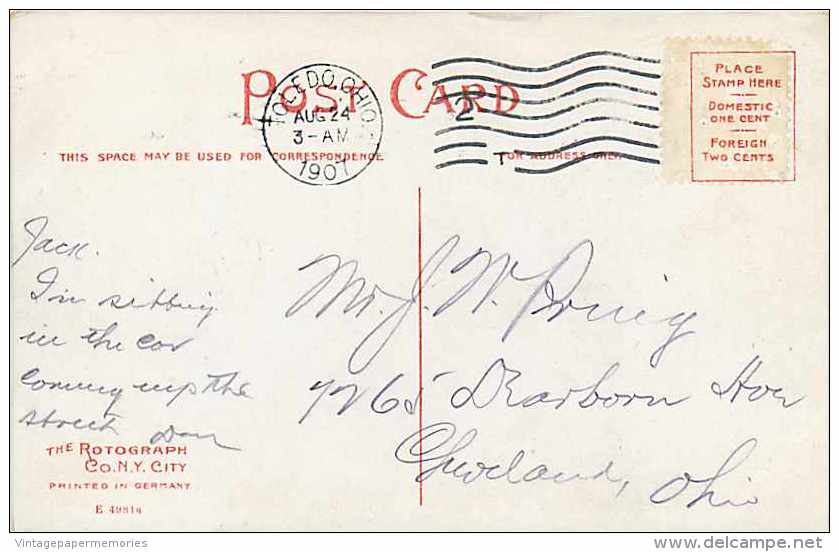 POST CARD
TOLEDO, OHIO
AUG 24
3-AM
1907
2
T
PLACE
STAMP HERE
DOMESTIC
ONE CENT
FOREIGN
TWO CENTS
THIS SPACE MAY BE USED FOR CORRESPONDENCE
FOR ADDRESS ONLY
Jack.
I'm sitting
in the car
coming up the
street Dan
Mr. J. W.
7265 Dearborn Ave
Cleveland, Ohio
THE ROTOGRAPH
CO. N.Y. CITY
PRINTED IN GERMANY
E 4981a
Vintagepapermemories
delcampe.net